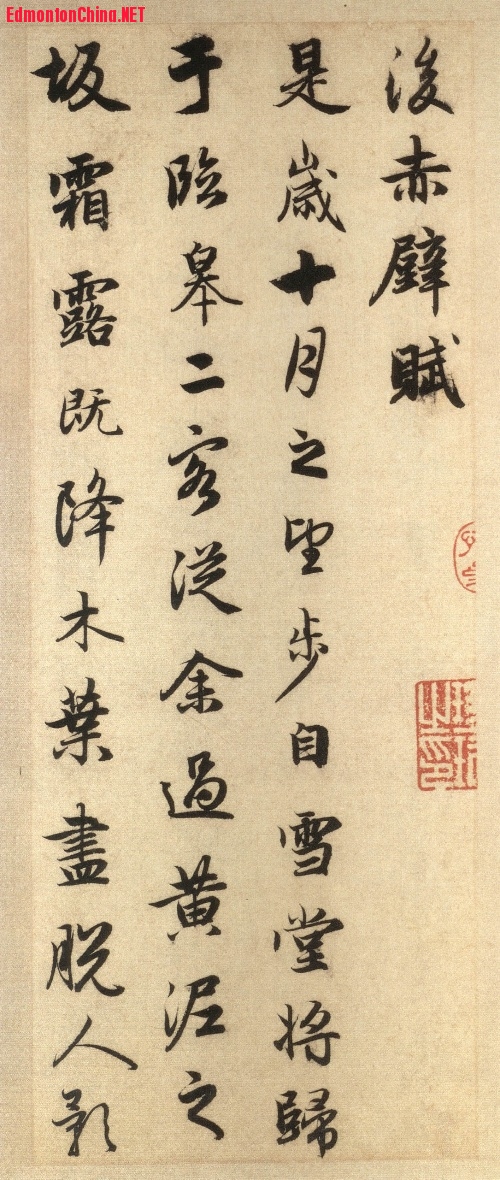 EdmontonChina.NET
後赤壁賦
是歲十月之望步自雪堂將歸
于臨皋二客從余過黃泥之
坂霜露既降木葉盡脫人影